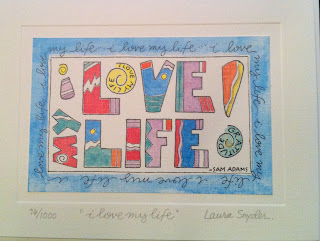 my life ~ i love my life ~ i love
i LOVE !
I LOVE MY LIFE
MY LIFE.
GRATITUDE
~SAM ADAMS
my life ~ i love
i love my
i love my life
/1000 "i love my life" Laura